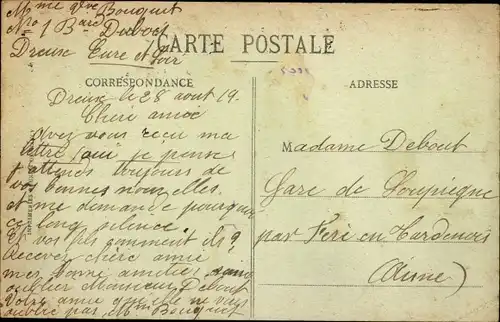 Mme Vve Bouquet
No 1 Bard Dubois
Dreux Eure et Loir
CARTE POSTALE
CORRESPONDANCE
ADRESSE
Dreux le 28 aout 19
Cheri amie
avez vous recu ma
lettre oui je pense
j attends toujours de
vos bonnes nouvelles.
et me demande pourquoi
ce long silence.
Et vos fils comment
Recever chère amie
mes bonne amitiés, sans
oublier Monsieur Debout
Votre amie qui elle ne vous
oublie pas, Mme Bouquet
Madame Debout
Gare de
par Fère en Tardenois
(Aisne)